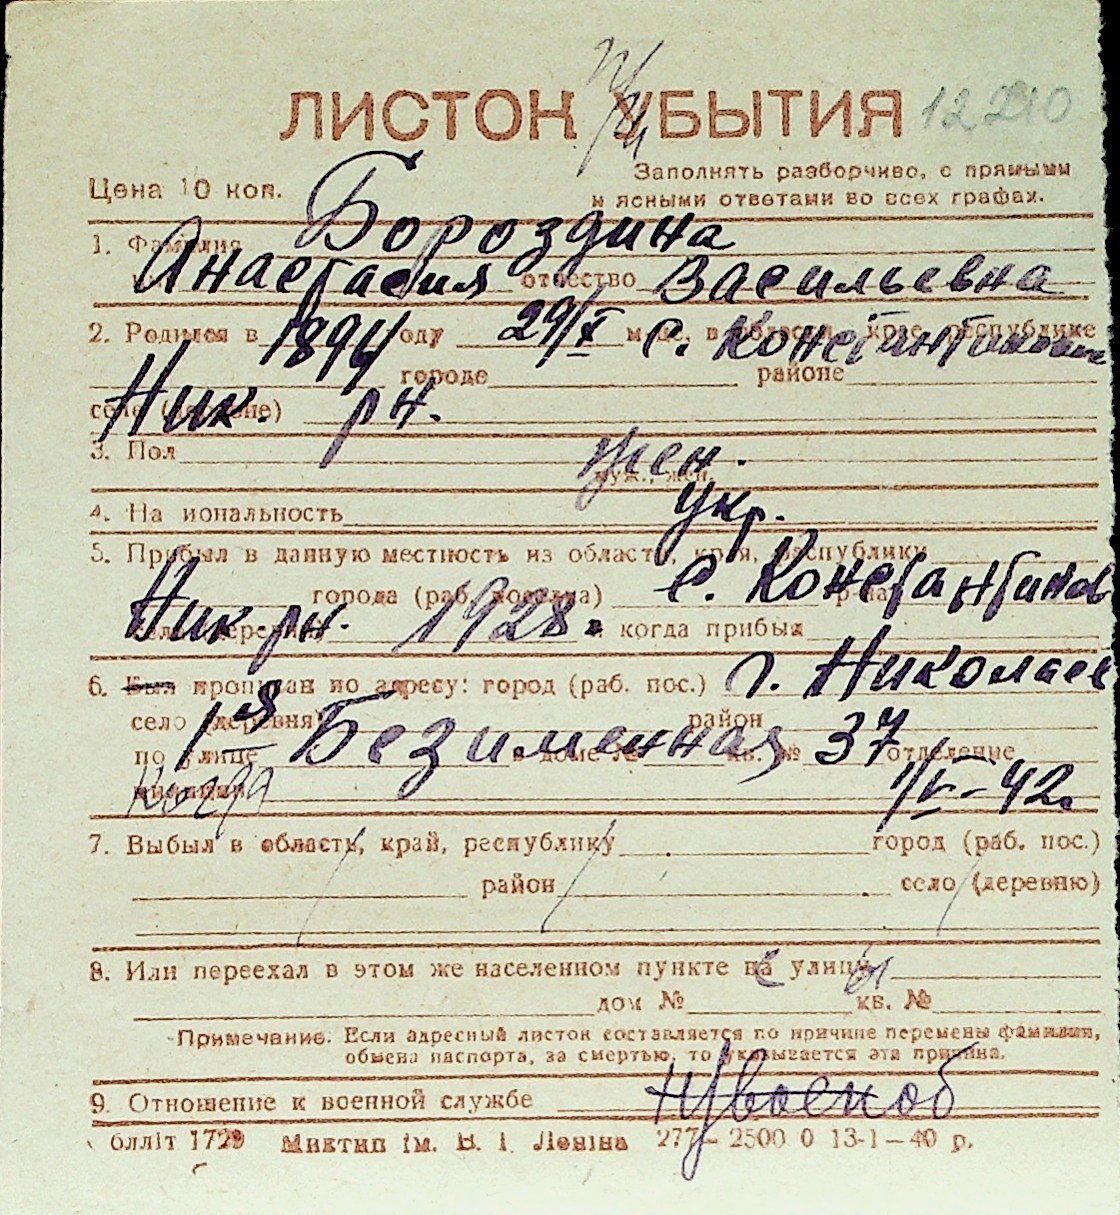 ЛИСТОК УБЫТИЯ 12240
Цена 10 коп.
Заполнять разборчиво, с прямыми
и ясными ответами во всех графах.
1. Фамилия Бороздина
Анастасия отчество Васильевна
2. Родился в 1894 году 29/X м-це, в области, крае, республике с. Константиновка
городе районе
селе (деревне) Ник. рн.
3. Пол жен.
муж., жен.
4. Национальность укр.
5. Прибыл в данную местность из области, края, республики
города (раб. поселка) с. Константинов р-на
Ник рн. 1928 г когда прибыл
6. Был прописан по адресу: город (раб. пос.) г. Николаев
село (деревня) район
по улице 1ая Безименная в доме № кв. № 37 отделение
милиции Когда 1/V-42г
7. Выбыл в область, край, республику город (раб. пос.)
район село (деревню)
8. Или переехал в этом же населенном пункте на улицу
дом № кв. №
Примечание. Если адресный листок составляется по причине перемены фамилии,
обмена паспорта, за смертью, то указывается эта причина.
9. Отношение к военной службе н/военоб
бліт 1729 Миктип ім. В. І. Леніна 277 - 2500 0 13-1-40 р.